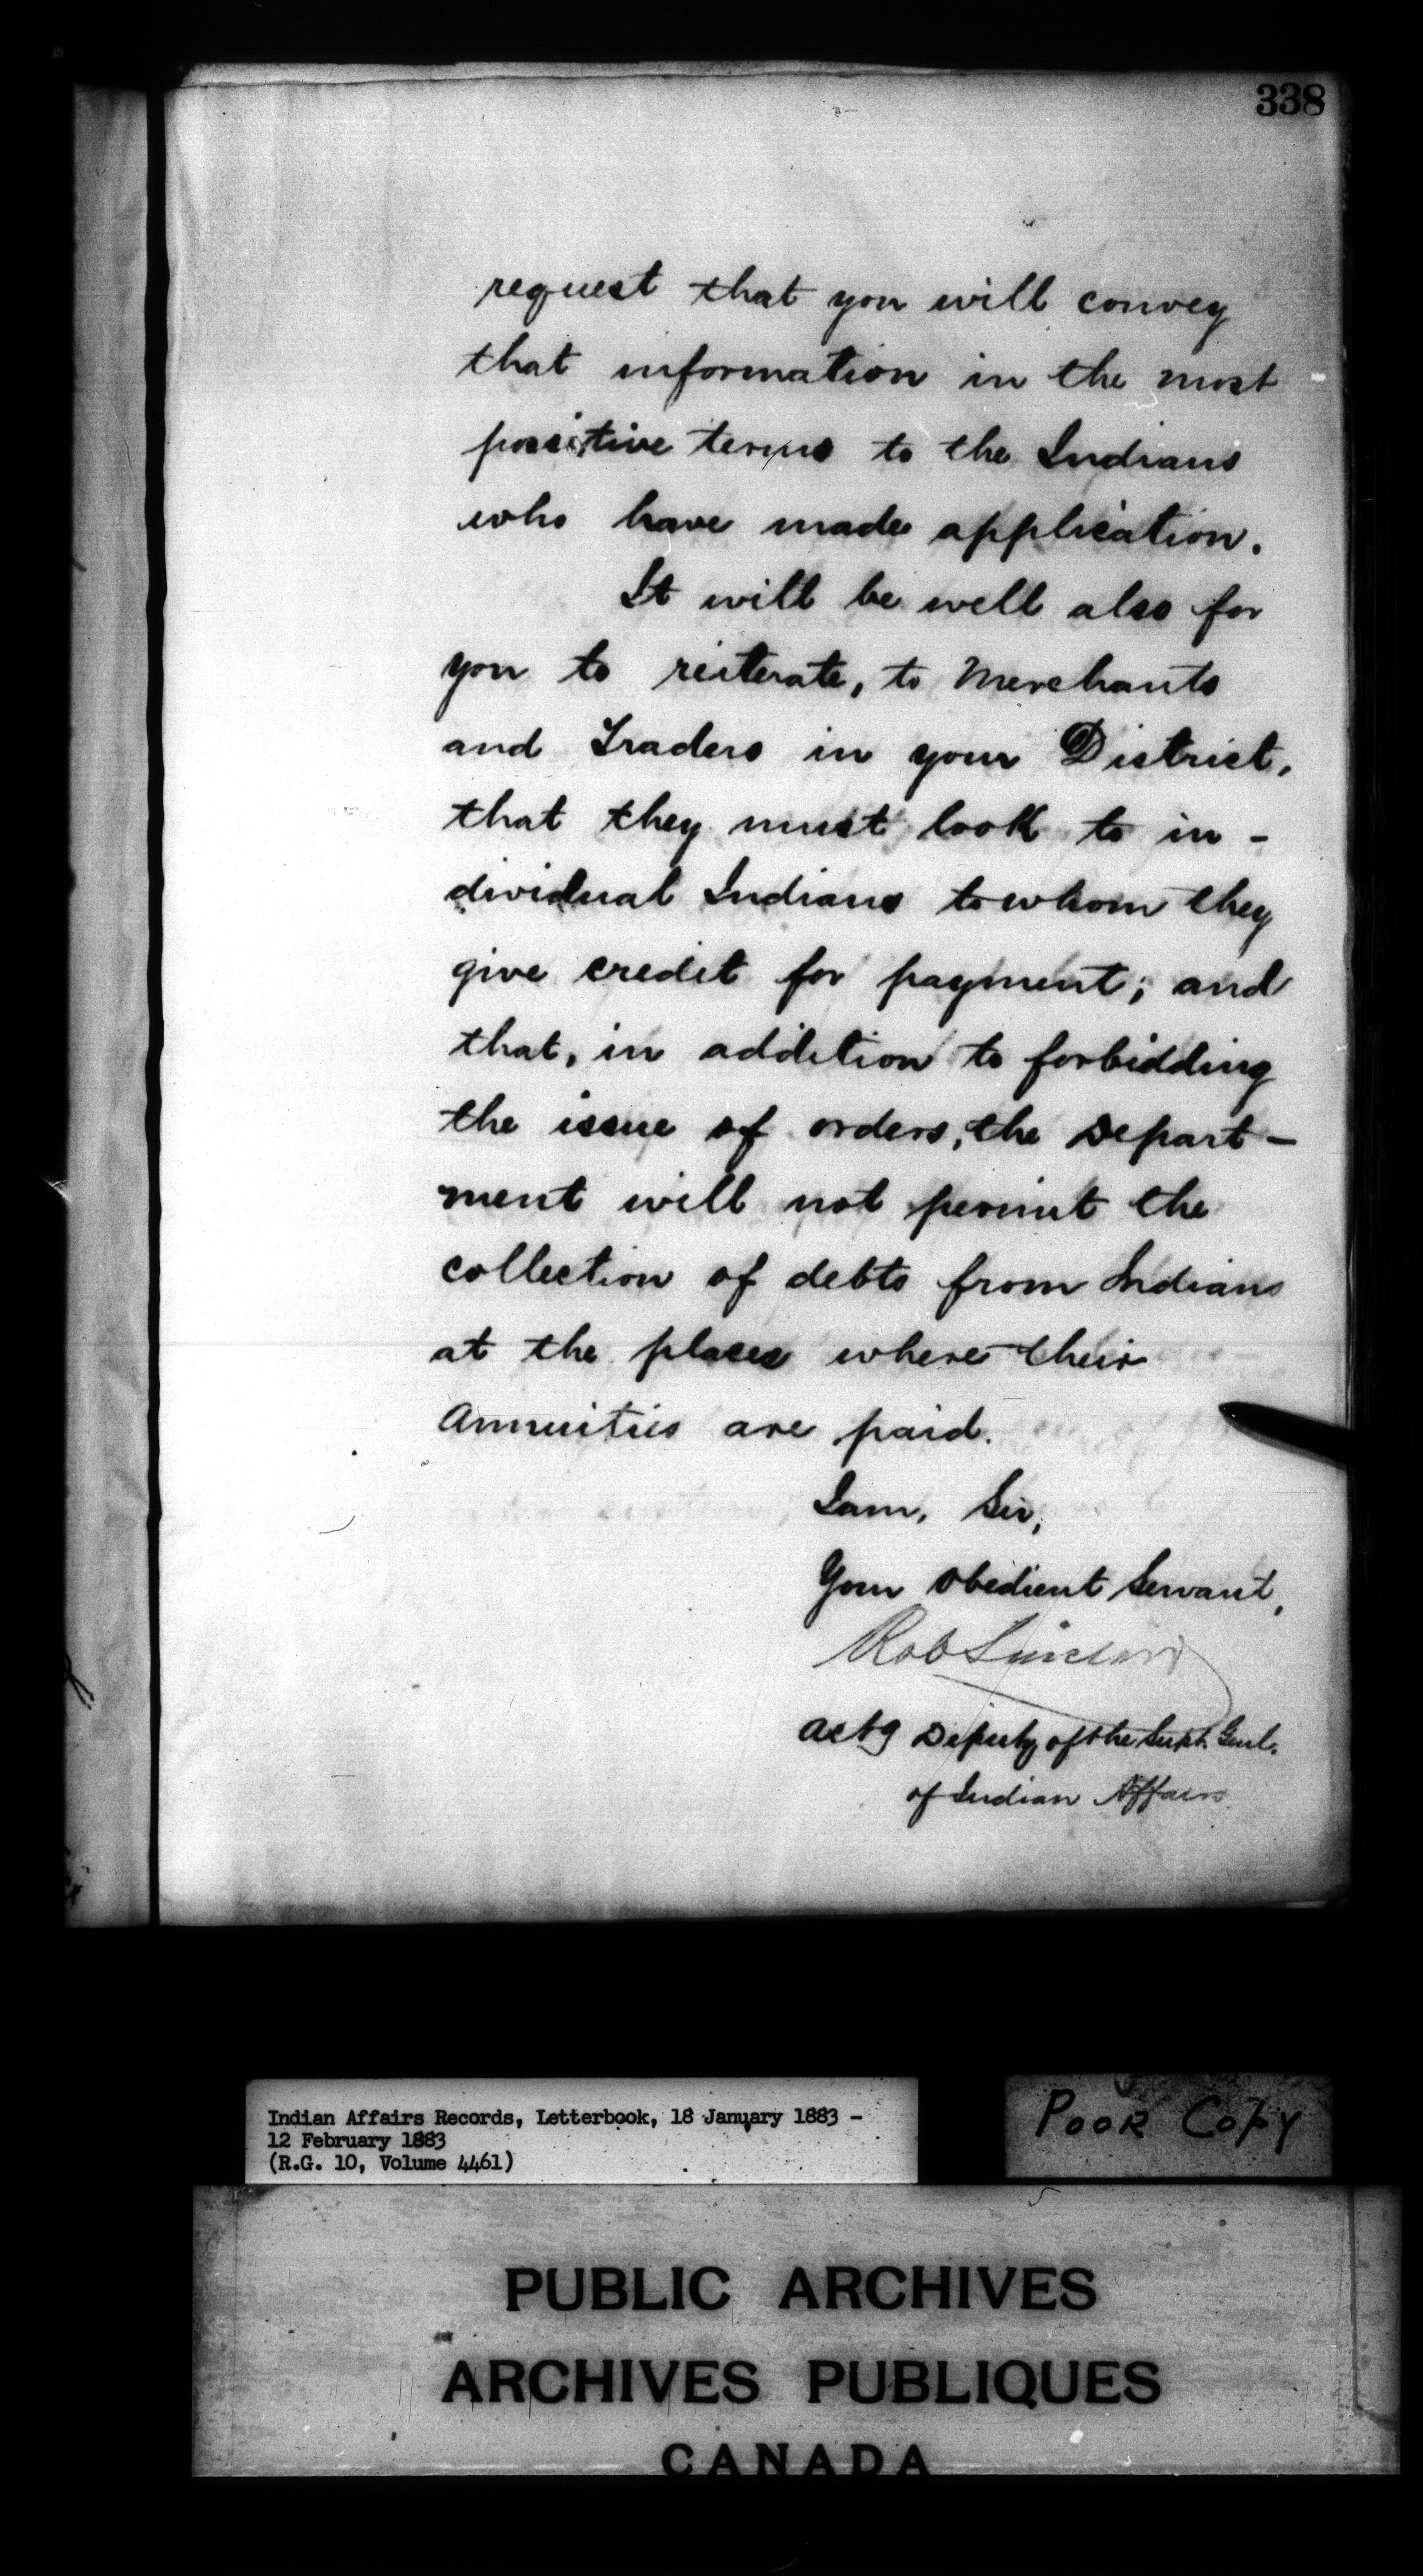 338
request that you will convey
that information in the most
positive terms to the Indians
who have made application.
It will be well also for
you to reiterate, to Merchants
and Traders in your District,
that they must look to in-
dividual Indians to whom they
give credit for payment; and
that, in addition to forbidding
the issue of orders, the Depart-
ment will not permit the
collection of debts from Indians
at the places where their
Annuities are paid.
I am, Sir,
Your obedient Servant,
Rob Sinclair
Actg Deputy of the Supt. Genl.
of Indian Affairs
Indian Affairs Records, Letterbook, 18 January 1883 -
12 February 1883
(R.G. 10, Volume 4461)
POOR COPY
PUBLIC ARCHIVES
ARCHIVES PUBLIQUES
CANADA